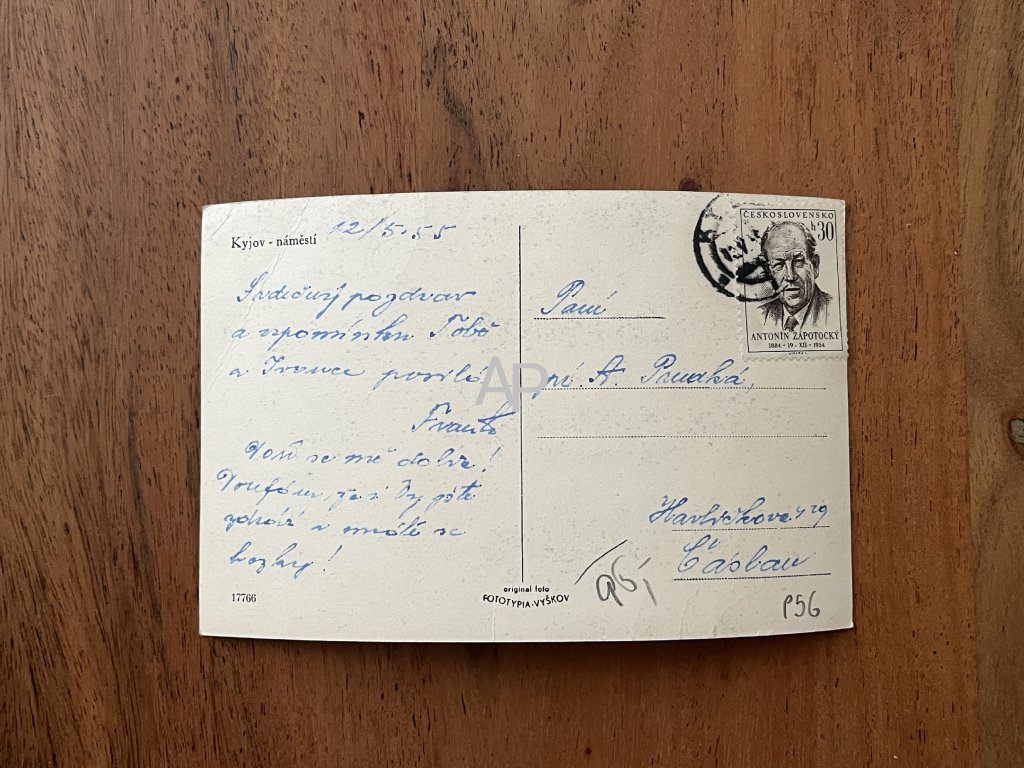 Kyjov - náměstí 12/5.55
Srdečný pozdrav
a vzpomínku Tobě
a Ivance posílá
Franta
se mě dobře!
Doufám, že i Vy jste
zdrávi a máte se
hezky!
17766
original foto
FOTOTYPIA-VYŠKOV
ČESKOSLOVENSKO
h 30
ANTONÍN ZÁPOTOCKÝ
1884 · 19 · XII · 1954
Paní
pí. A.
Havlíčkova
Čáslav
P56
AP